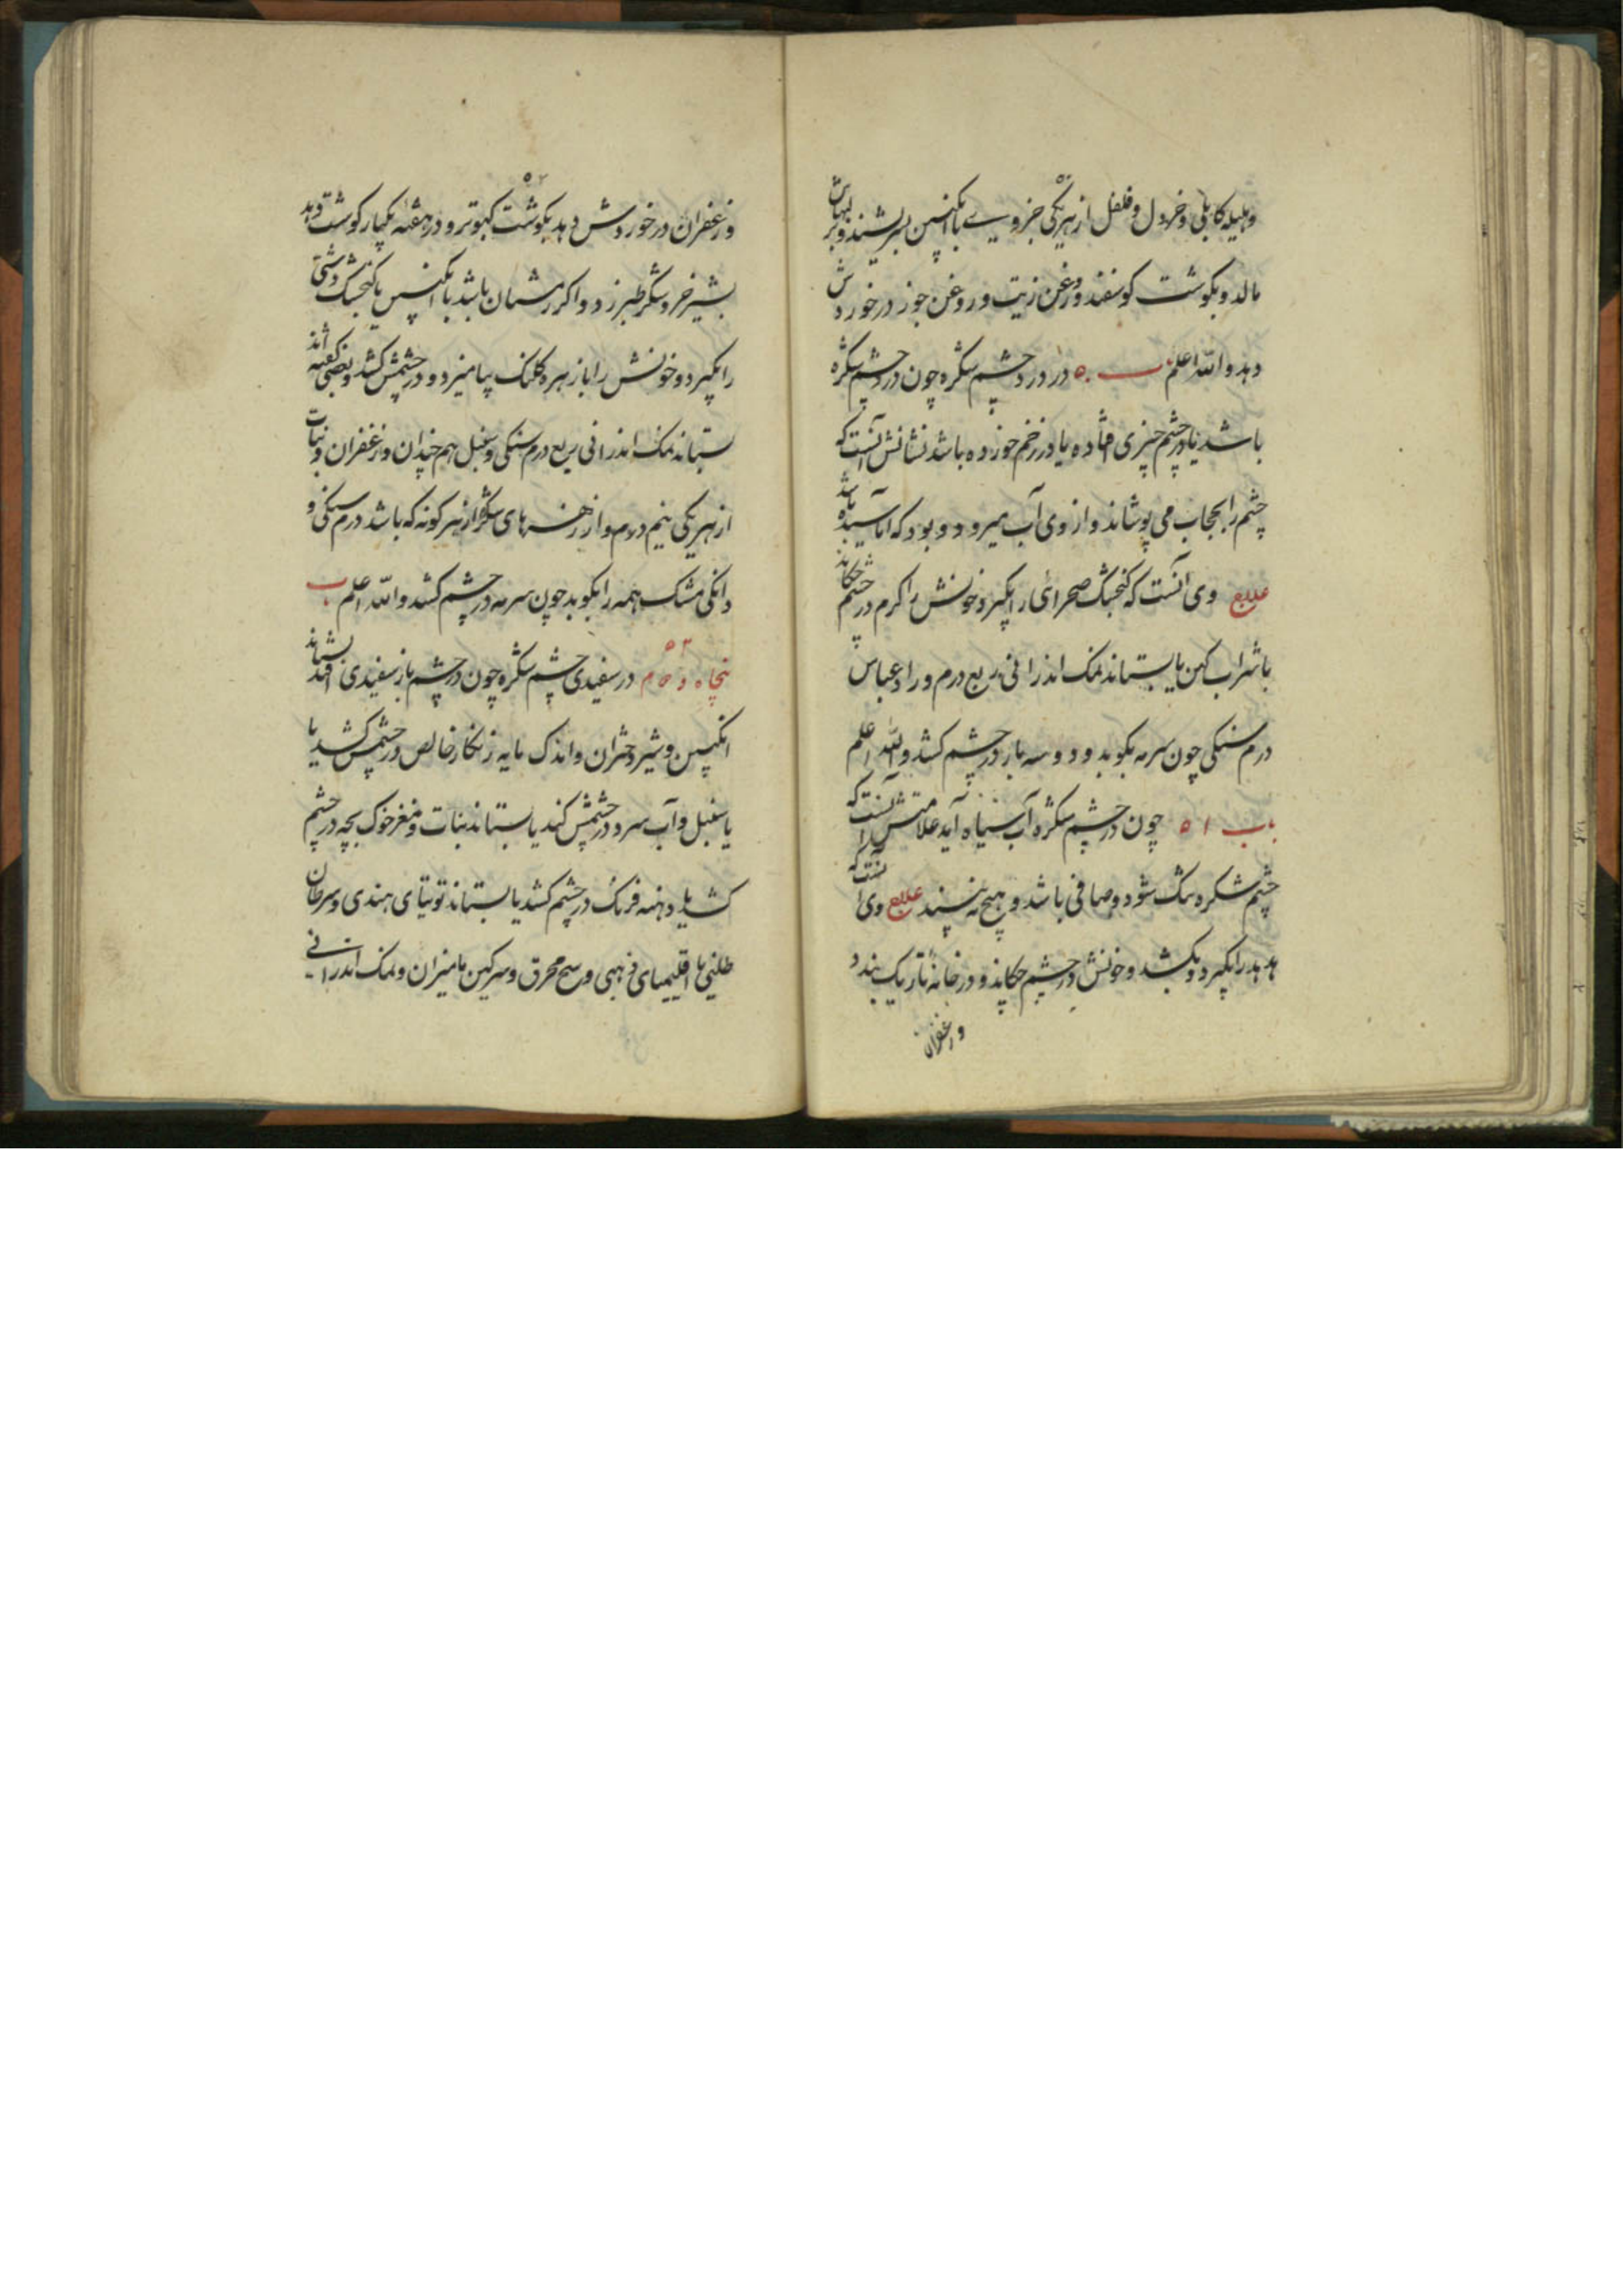 وهلیله کابلی وخردل وفلفل از هریکی جزوی با انکبین بسریشند وبر لبهاش
مالد و بکوشت کوسفند وروغن زیت وروغن جوز در خورش
دهد والله اعلم باب ۵۰ در درد چشم شکره چون در چشم شکره
باشد یا در چشم چیزی افتاده یا ورا زخم خورده باشد نشانش آنست که
چشم را بحجاب می پوشاند واز وی آب میرود و بود که آماسیده باشد
علاج وی آنست که کنجشک صحرائی را بگیرد خونش را کرم در چشم چکاند
با شراب کهن یا بستاند نمک اندرانی ربع درم و راد عباس
درم سنکی چون سرمه بکوبد و دو سه بار در چشم کشد والله اعلم
باب ۵۱ چون در چشم شکره آب سیاه آید علامتش آنست که
چشم شکره تنک شود وصافی باشد و هیچ نه بیند علاج وی آنست که
هدهد را بگیرد و بکشد و خونش در چشم چکاند و در خانه تاریک بندد
وزعفران
۵۲
وزعفران در خوردش دهد بکوشت کبوتر و در هفته یکبار کوشت دهد
بشیر خر و شکر طبرزد و اکر زمستان باشد با انکبین یا کنجشک دشتی
را بگیرد و خونش را با زهره کلنک بیامیزد و در چشمش کشد و بعضی گفته اند
بستاند نمک اندرانی ربع درم سنکی و سنبل هم چندان و زعفران و نبات
از هر یکی نیم درم و از زهره های شکره از هر کونه که باشد درم سنکی و
دانکی مشک همه را بکوبد چون سرمه در چشم کشد والله اعلم باب
۵۲
پنجاه و دوم در سفیدی چشم شکره چون در چشم باز سفیدی افتد بستاند
انکبین و شیر دختران و اندک مایه زنکار خالص در چشمش کشد یا
یا سنبل و آب سرد در چشمش کند یا بستاند نبات و مغز خوک بچه در چشم
کشد یا دهنه فرنک در چشم کشد یا بستاند توتیای هندی و سرطان
اقلیمیای ذهبی و محرق و سرکین مامیران و نمک اندرانی